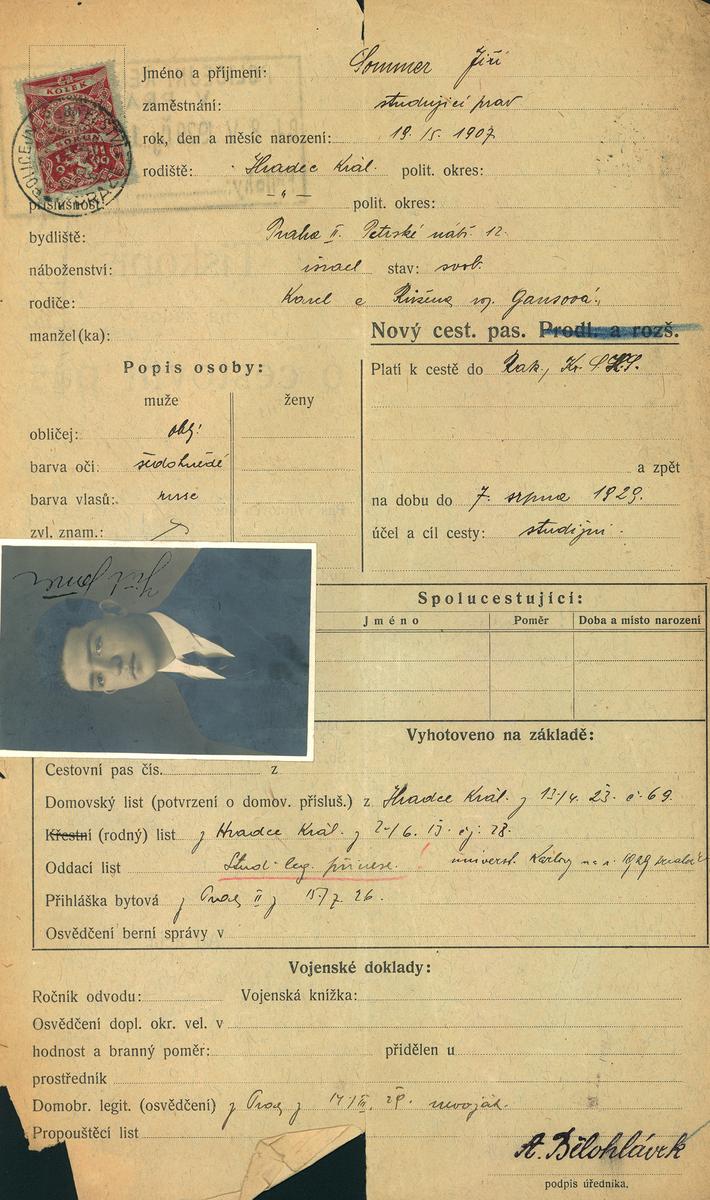 KOLEK
Jméno a příjmení: Sommer Jiří
zaměstnání: studující prav
rok, den a měsíc narození: 19. 5. 1907
rodiště: Hradec Král. polit. okres:
příslušnost: -„- polit. okres:
bydliště: Praha II. Petrské nábř. 12.
náboženství: israel stav: svob.
rodiče: Karel a Růžena roz. Gansová.
manžel(ka):
Nový cest. pas. Prodl. a rozš.
Popis osoby:
muže ženy
obličej: obl.
barva očí: šedohnědé
barva vlasů:
zvl. znam.:
Platí k cestě do Rak., Kr. S.H.S.
a zpět
na dobu do 7. srpna 1929.
účel a cíl cesty: studijní
Jiří Sommer
Spolucestující:
Jméno Poměr Doba a místo narození
Vyhotoveno na základě:
Cestovní pas čís. z
Domovský list (potvrzení o domov. přísluš.) z Hradce Král. z 13/4. 23. č. 69.
Křestní (rodný) list z Hradce Král. z čj: 28.
Oddací list Stud. leg. přinese. ! universt. Karlovy 1929
Přihláška bytová z Prahy II z 15/7. 26.
Osvědčení berní správy v
Vojenské doklady:
Ročník odvodu: Vojenská knížka:
Osvědčení dopl. okr. vel. v
hodnost a branný poměr: přidělen u
prostředník
Domobr. legit. (osvědčení) z Prahy z nevoják.
Propouštěcí list
A. Bělohlávek
podpis úředníka.